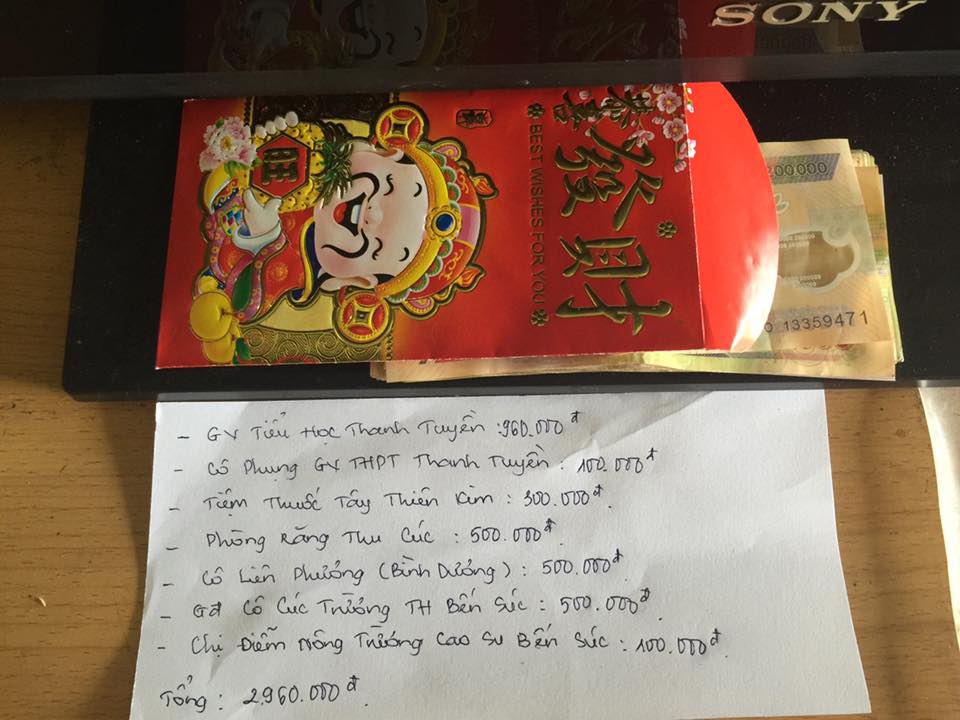 SONY
恭喜
發財
BEST WISHES FOR YOU
旺
13359471
- GV Tiểu Học Thanh Tuyền : 960.000đ
- Cô Phụng GV THPT Thanh Tuyền : 100.000đ
- Tiệm Thuốc Tây Thiên Kim : 300.000đ.
- Phòng Răng Thu Cúc : 500.000đ
- Cô Liên Phương (Bình Dương) : 500.000đ.
- Gđ Cô Cúc Trường TH Bến Súc : 500.000đ
- Chị Điểm Nông Trường Cao Su Bến Súc : 100.000đ.
Tổng : 2.960.000đ.